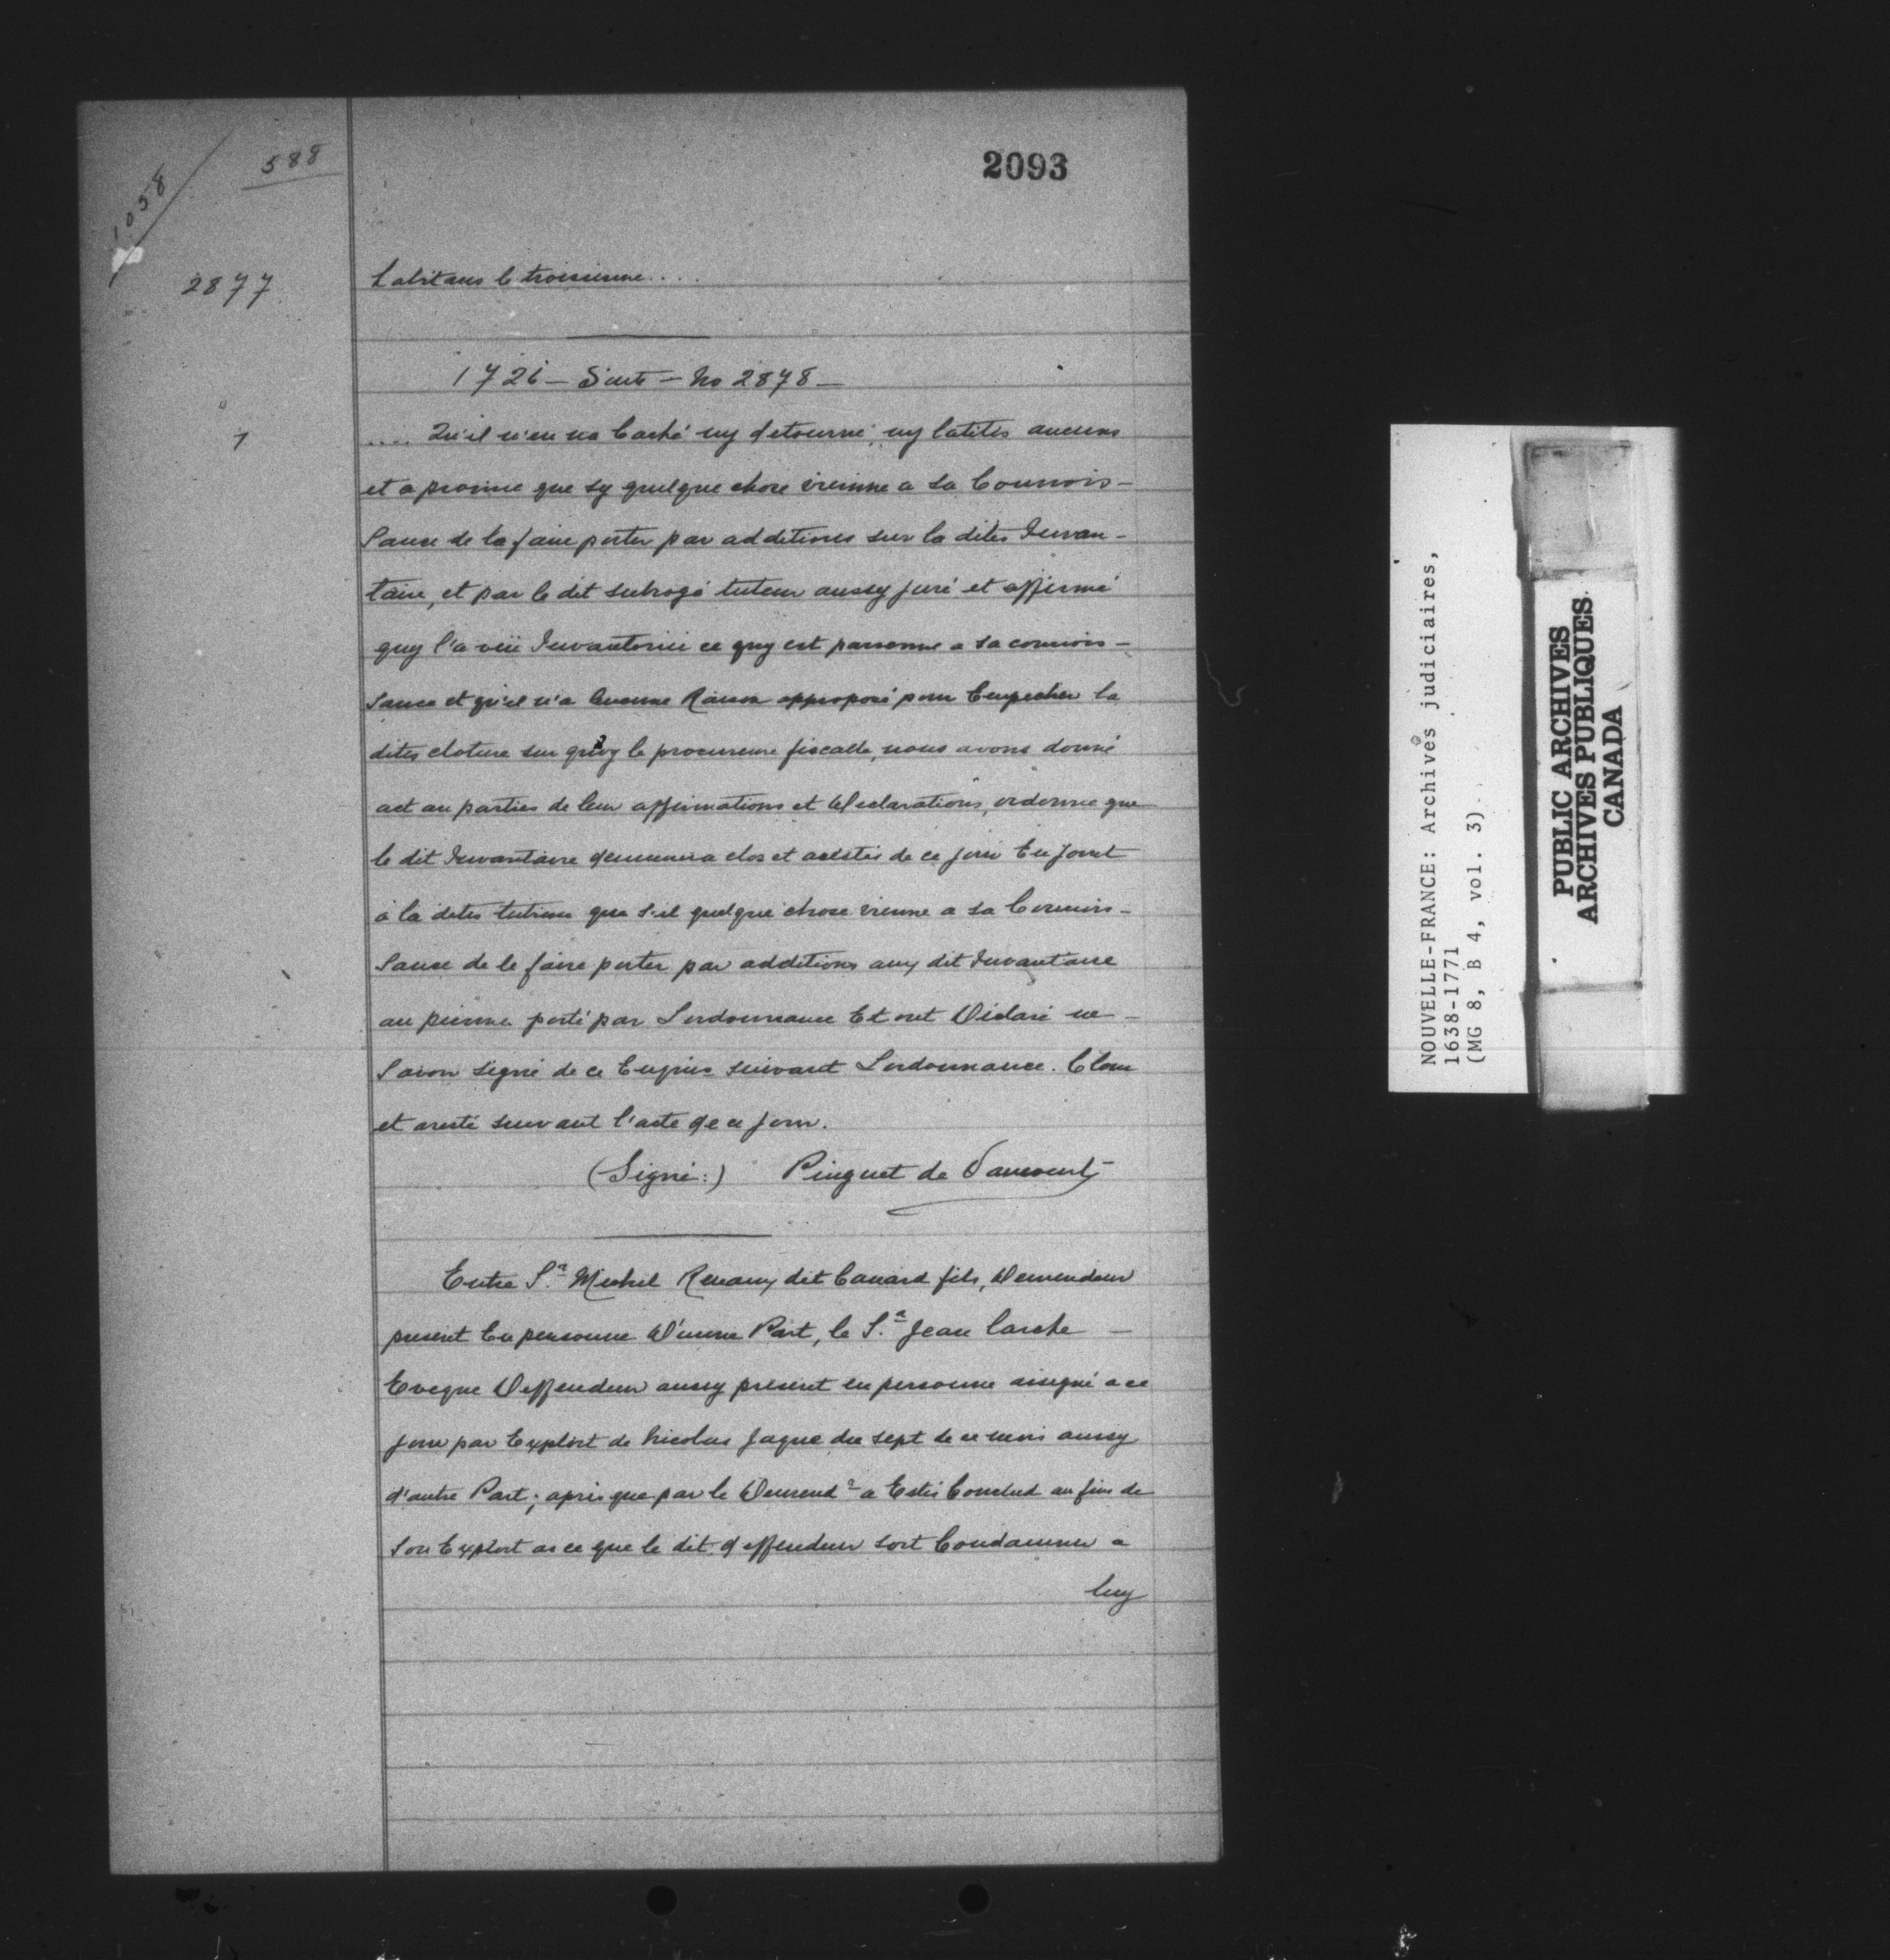 1038
588
2093
2877
habitans le troisieme....
1726 – Suite – No 2878 –
1
.... Qu'il n'en na Caché ny detourné, ny latités aucuns
et a promie que sy quelque chose vienne a sa Connois-
sance de la faire porter par additions sur la dites Invan-
taire, et par le dit subrogé tuteur aussy juré et affirmé
quy l'a veü Invantorier ce quy est parvenue a sa connois-
sance et qu'il n'a Aucune Raison opproposé pour Empecher la
dites cloture sur quoy le procureure fiscalle, nous avons donné
act au parties de leur affirmations et Declarations, ordonne que
le dit Invantaire demeurera clos et arestés de ce jour En joint
à la dites tutrice que s'il quelque chose vienne a sa Connois-
sance de le faire porter par additions aux dit Invantaire
au peinne porté par Lordonnance Et ont Déclaré ne –
savoir signé de ce Enquis suivant Lordonnance. Clour
et aresté suivant l'acte de ce jour.
(Signé:) Pinguet de Vaucourt
Entre Sr. Michel Renauy dit Canard fils, Demendeur
present En personne D'unne Part, le Sr. Jean Larche –
Eveque Deffendeur aussy présent en personne assigné a ce
jour par Exploit de Nicolas Jaque du sept de ce mois aussy
d'autre Part; après que par le Demendr a Estés Conclud au fins de
son Exploit as ce que le dit deffendeur soit Condamner a
luy
NOUVELLE-FRANCE: Archives judiciaires,
1638-1771
(MG 8, B 4, vol. 3)
PUBLIC ARCHIVES
ARCHIVES PUBLIQUES
CANADA